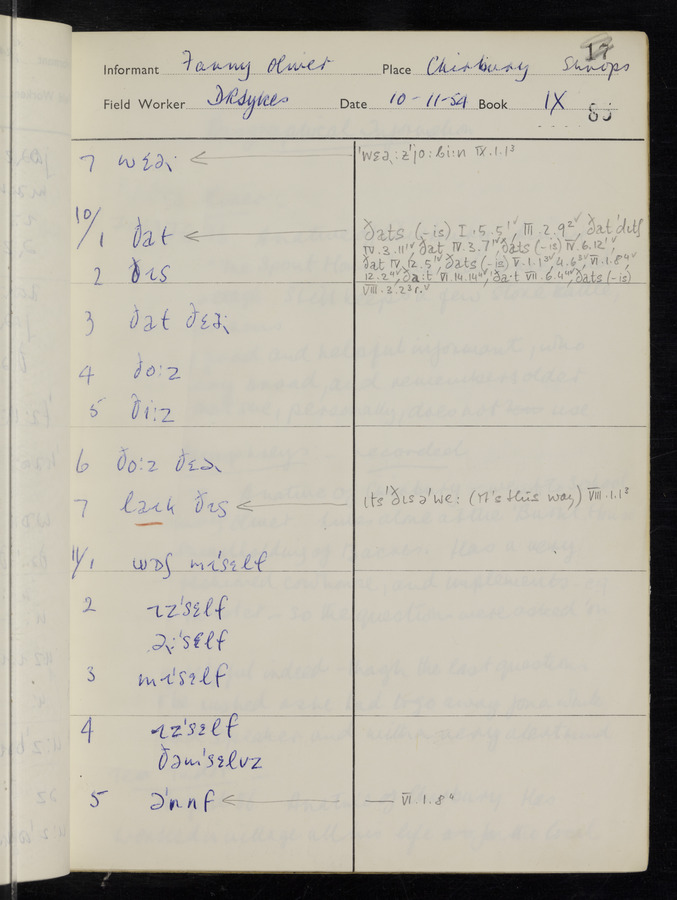 17
Informant Fanny Oliver Place Chirbury Shrops
Field Worker DRSykes Date 10-11-54 Book IX 85
7 wɛəɹ ← 'wɛəɹ:z'jo:bi:n IX.1.1³
10/1 ðat ← ðats (-is) I.5.5'ᵛ, III.2.9²ᵛ, ðat'dɪtʃ
IV.3.11'ᵛ, ðat IV.3.7'ᵛ, ðats (-is) IV.6.12'ᵛ,
ðat IV.12.5'ᵛ, ðats (-is) V.1.1³ᵛ 4.6³ᵛ, VI.1.8⁴ᵛ
2 ðɪs 12.2⁴ᵛ, ða:t VI.14.14⁴ᵛ, ða·t VII.6.4⁴ᵛ, ðats (-is)
VIII.3.2³r.ᵛ
3 ðat ðɛəɹ
4 ðo:z
5 ði:z
6 ðo:z ðɛəɹ
7 laɪk ðɪs ← ɪts'ðɪsə'we: (it's this way) VIII.1.1⁸
11/1 wɒʃ mɪself
2 ɪz'sɛlf
əɹ'sɛlf
3 mɪ'sɛlf
4 ɪz'sɛlf
ðəm'sɛlvz
5 ə'nʌf ← VI.1.8⁴